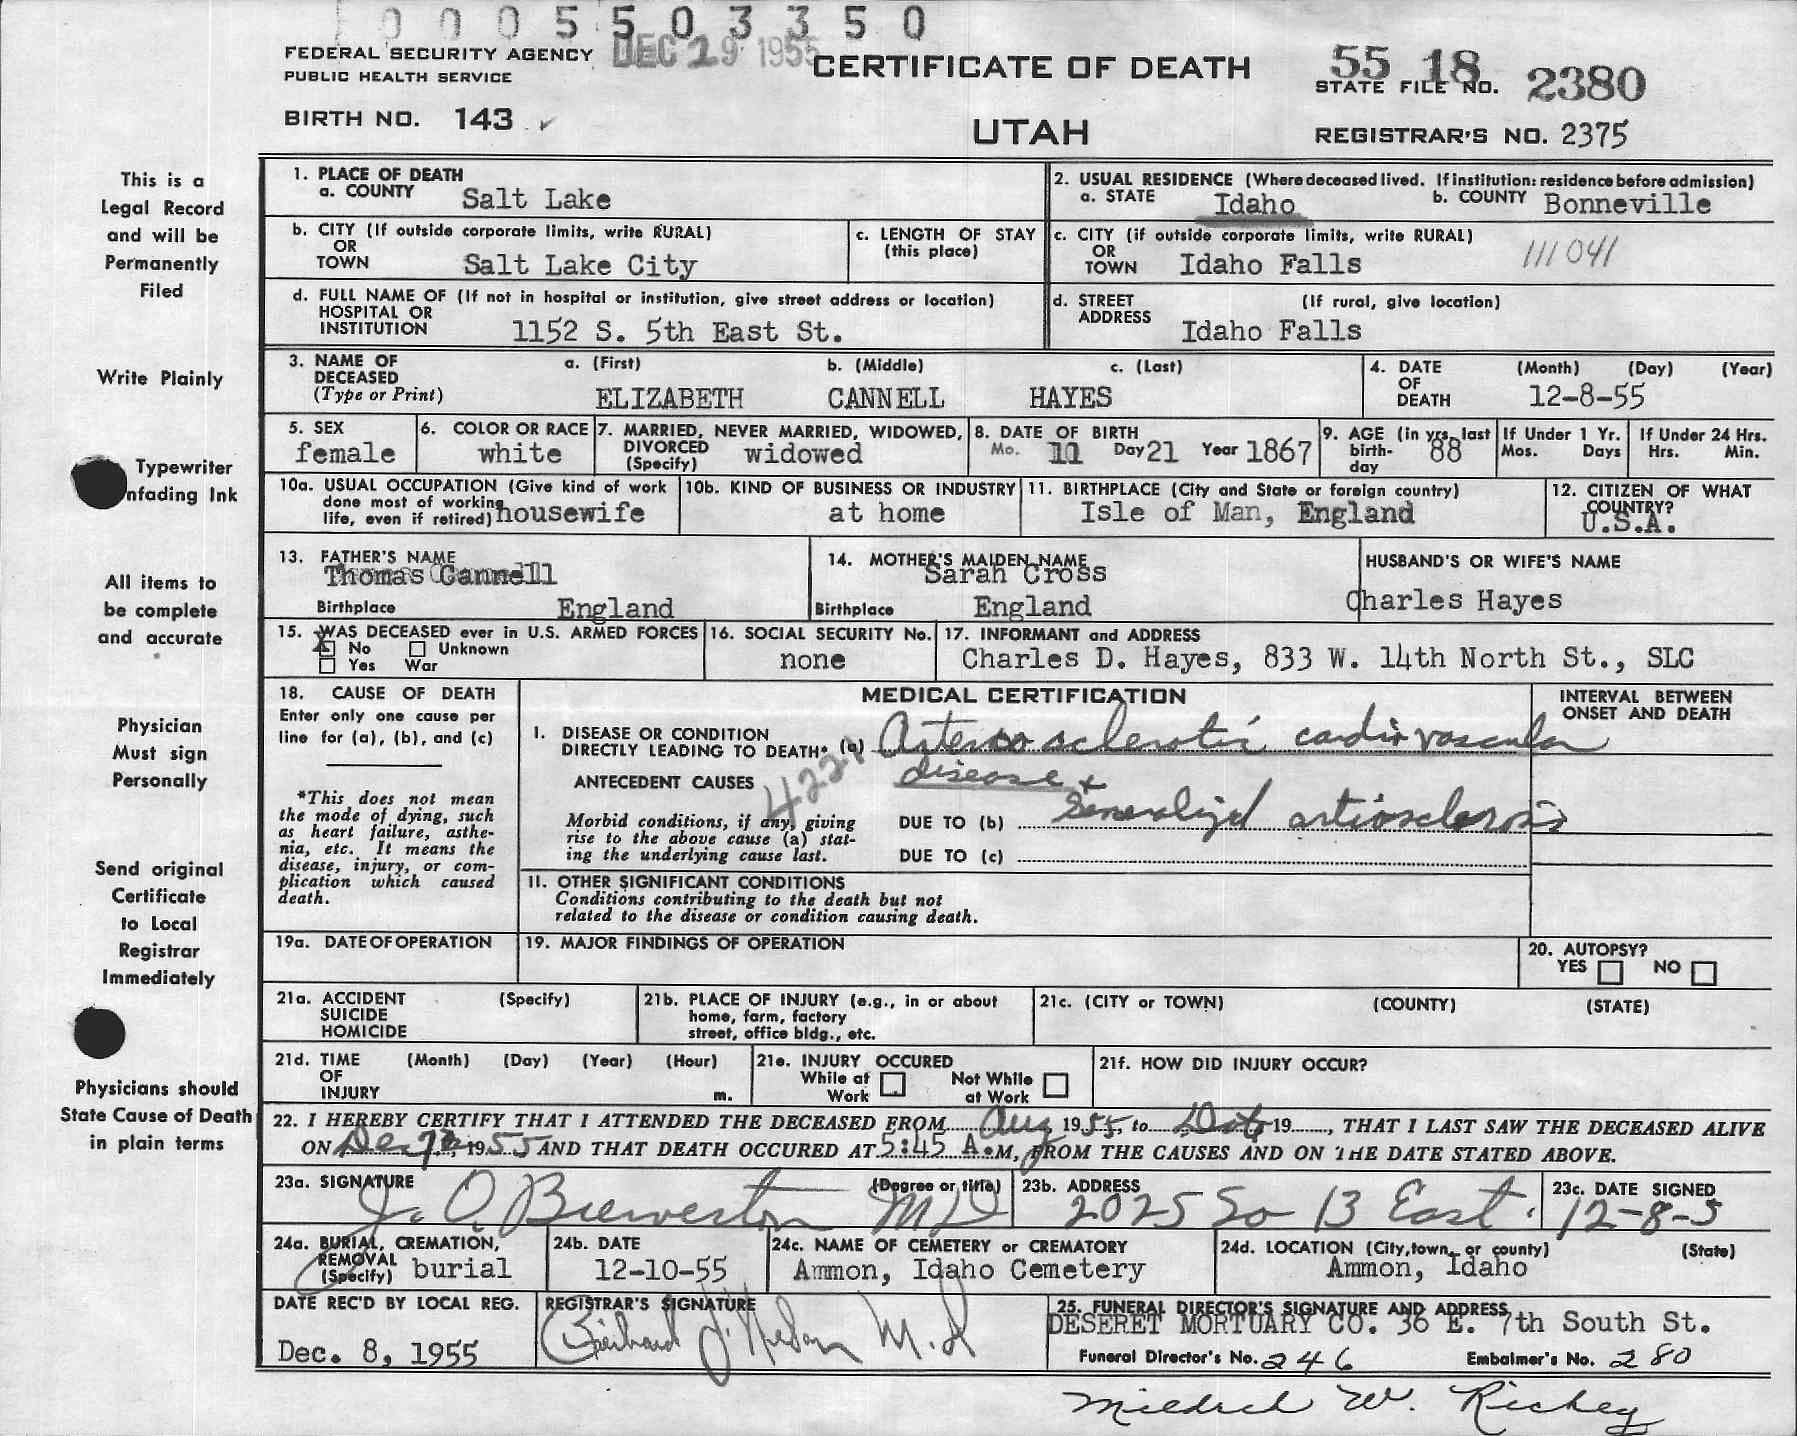 0 0 0 5 5 0 3 3 5 0
FEDERAL SECURITY AGENCY
PUBLIC HEALTH SERVICE
DEC 29 1955
CERTIFICATE OF DEATH
UTAH
55 18 2380
STATE FILE NO.
BIRTH NO. 143
REGISTRAR'S NO. 2375
This is a
Legal Record
and will be
Permanently
Filed
Write Plainly
Typewriter
nfading Ink
All items to
be complete
and accurate
Physician
Must sign
Personally
Send original
Certificate
to Local
Registrar
Immediately
Physicians should
State Cause of Death
in plain terms
1. PLACE OF DEATH
a. COUNTY Salt Lake
2. USUAL RESIDENCE (Where deceased lived. If institution: residence before admission)
a. STATE Idaho b. COUNTY Bonneville
b. CITY (If outside corporate limits, write RURAL)
OR
TOWN Salt Lake City
c. LENGTH OF STAY
(this place)
c. CITY (if outside corporate limits, write RURAL)
OR
TOWN Idaho Falls
111 041
d. FULL NAME OF (If not in hospital or institution, give street address or location)
HOSPITAL OR
INSTITUTION 1152 S. 5th East St.
d. STREET (If rural, give location)
ADDRESS
Idaho Falls
3. NAME OF DECEASED a. (First) b. (Middle) c. (Last)
(Type or Print) ELIZABETH CANNELL HAYES
4. DATE OF DEATH (Month) (Day) (Year)
12-8-55
5. SEX
female
6. COLOR OR RACE
white
7. MARRIED, NEVER MARRIED, WIDOWED,
DIVORCED
(Specify) widowed
8. DATE OF BIRTH
Mo. Day 21 Year 1867
9. AGE (in yrs. last
birth-
day 88
If Under 1 Yr.
Mos. Days
If Under 24 Hrs.
Hrs. Min.
10a. USUAL OCCUPATION (Give kind of work
done most of working
life, even if retired) housewife
10b. KIND OF BUSINESS OR INDUSTRY
at home
11. BIRTHPLACE (City and State or foreign country)
Isle of Man, England
12. CITIZEN OF WHAT
COUNTRY?
U.S.A.
13. FATHER'S NAME
Thomas Cannell
Birthplace England
14. MOTHER'S MAIDEN NAME
Sarah Cross
Birthplace England
HUSBAND'S OR WIFE'S NAME
Charles Hayes
15. WAS DECEASED ever in U.S. ARMED FORCES
X No Unknown
Yes War
16. SOCIAL SECURITY No.
none
17. INFORMANT and ADDRESS
Charles D. Hayes, 833 W. 14th North St., SLC
18. CAUSE OF DEATH
Enter only one cause per
line for (a), (b), and (c)
*This does not mean
the mode of dying, such
as heart failure, asthe-
nia, etc. It means the
disease, injury, or com-
plication which caused
death.
MEDICAL CERTIFICATION
INTERVAL BETWEEN
ONSET AND DEATH
I. DISEASE OR CONDITION
DIRECTLY LEADING TO DEATH* (a) Arteriosclerotic cardiovascular
disease +
ANTECEDENT CAUSES
Morbid conditions, if any, giving
rise to the above cause (a) stat-
ing the underlying cause last.
DUE TO (b) Generalized artiosclerosis
DUE TO (c)
II. OTHER SIGNIFICANT CONDITIONS
Conditions contributing to the death but not
related to the disease or condition causing death.
19a. DATE OF OPERATION
19. MAJOR FINDINGS OF OPERATION
20. AUTOPSY?
YES NO
21a. ACCIDENT (Specify)
SUICIDE
HOMICIDE
21b. PLACE OF INJURY (e.g., in or about
home, farm, factory
street, office bldg., etc.
21c. (CITY or TOWN) (COUNTY) (STATE)
21d. TIME (Month) (Day) (Year) (Hour)
OF
INJURY m.
21e. INJURY OCCURED
While at Work Not While at Work
21f. HOW DID INJURY OCCUR?
22. I HEREBY CERTIFY THAT I ATTENDED THE DECEASED FROM Aug 1955, to 19 , THAT I LAST SAW THE DECEASED ALIVE
ON Dec 7, 1955 AND THAT DEATH OCCURED AT 5:45 A.M, FROM THE CAUSES AND ON THE DATE STATED ABOVE.
23a. SIGNATURE (Degree or title)
J. O. Brewerton MD
23b. ADDRESS
2025 So 13 East.
23c. DATE SIGNED
12-8-5
24a. BURIAL, CREMATION,
REMOVAL
(Specify) burial
24b. DATE
12-10-55
24c. NAME OF CEMETERY or CREMATORY
Ammon, Idaho Cemetery
24d. LOCATION (City, town, or county) (State)
Ammon, Idaho
DATE REC'D BY LOCAL REG.
Dec. 8, 1955
REGISTRAR'S SIGNATURE
M.D
25. FUNERAL DIRECTOR'S SIGNATURE AND ADDRESS
DESERET MORTUARY CO. 36 E. 7th South St.
Funeral Director's No. 246 Embalmer's No. 280
Mildred W. Richey